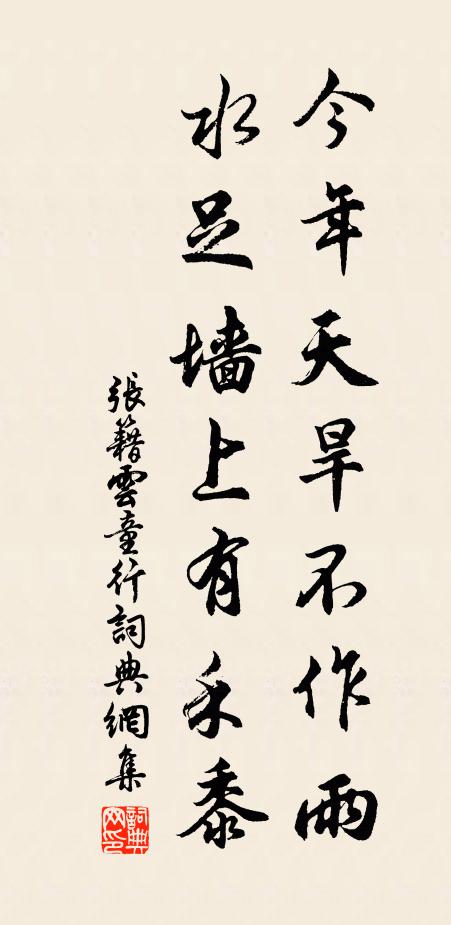 今年天旱不作雨
水足墙上有禾黍
張籍雲童行詞典網集
詞典
网印